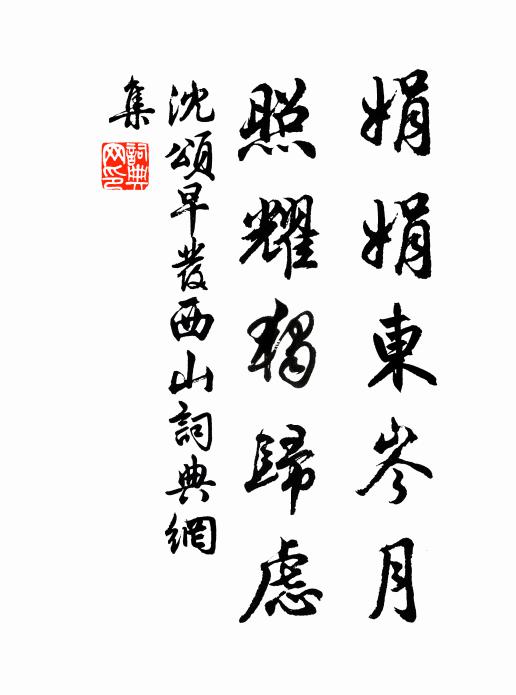 娟娟東岑月
照耀獨歸慮
沈頌早發西山詞典網
集
詞典網印